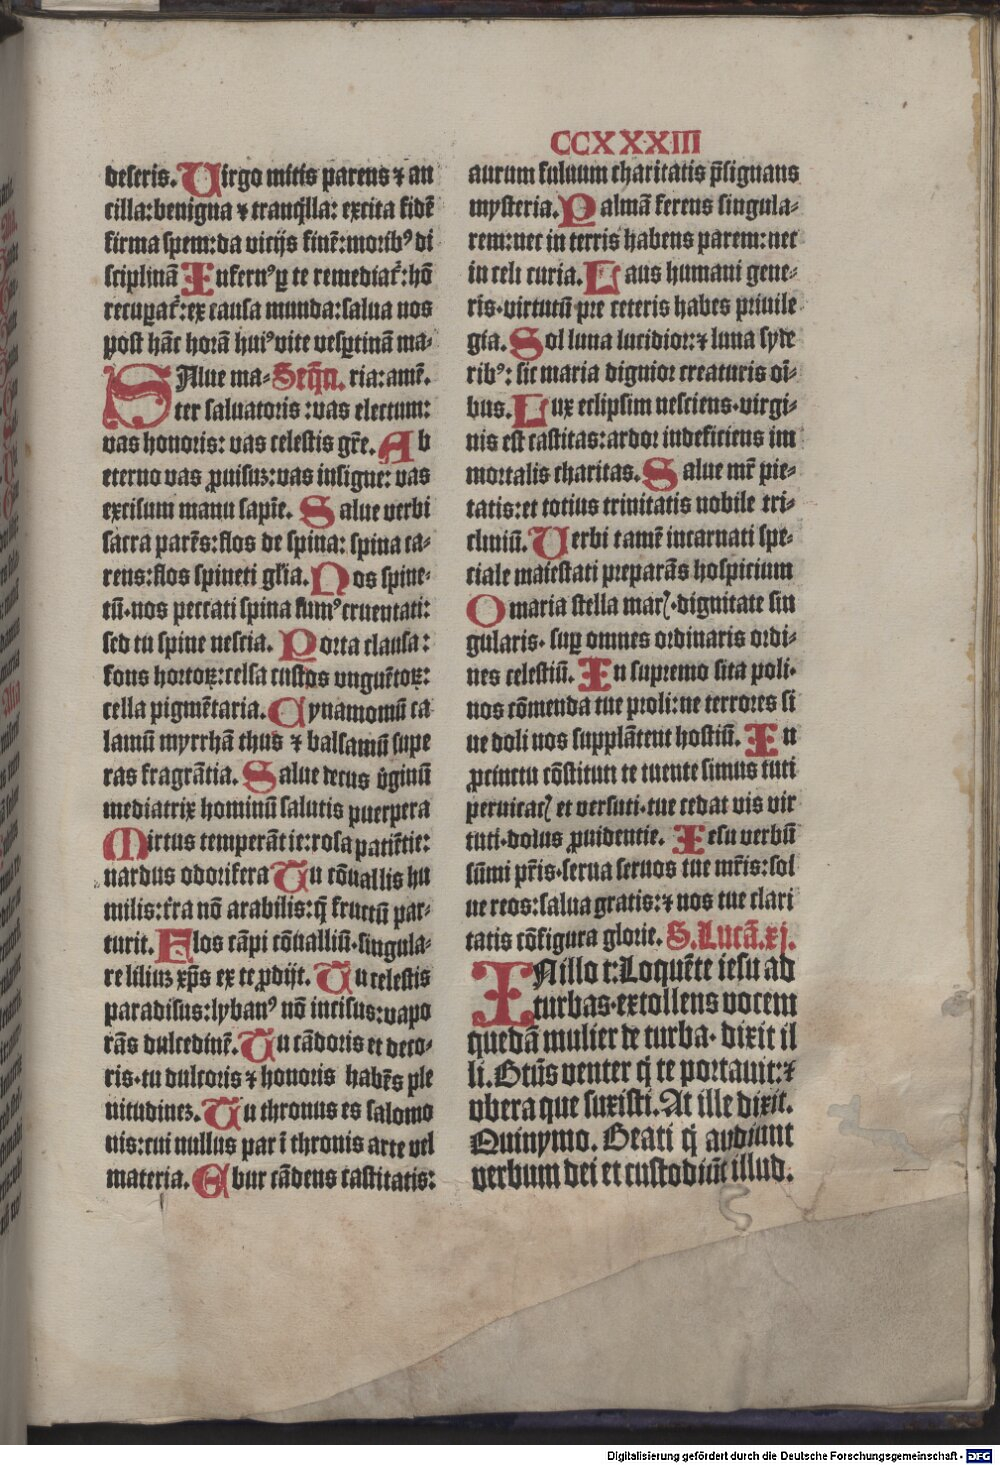 CCXXXIII
deseris. Uirgo mitis parens ⁊ an
cilla: benigna ⁊ tranq̃lla: excita fidē
firma spem: da vicijs finē: moribꝰ di
sciplinā Infernꝰ ꝑ te remediat᷑: hō
recuꝑat᷑: ex causa munda: salua nos
post hāc horā huiꝰ vite vesꝑtinā ma-
SAlue ma- Seq̄n. ria: amē.
ter saluatoris: vas electum:
vas honoris: vas celestis gr̄e. Ab
eterno vas ꝓuisuꝫ: vas insigne: vas
excisum manu sapīe. Salue verbi
sacra parēs: flos de spina: spina ca-
rens: flos spineti gl̄ia. Nos spine-
tū. nos peccati spina sumꝰ cruentati:
sed tu spine nescia. Porta clausa:
fons hortoꝝ: cella custos vnguētoꝝ:
cella pigmētaria. Cynamomū ca
lamū myrrhā thus ⁊ balsamū supe
ras fragrātia. Salue decus v̄ginū
mediatrix hominū salutis puerpera
Mirtus temperātie: rosa patiētie:
nardus odorifera Tu cōuallis hu
milis: t̄ra nō arabilis: q̄ fructū par-
turit. Flos cāpi cōualliū. singula-
re liliuꝫ xp̄s ex te ꝓdijt. Tu celestis
paradisus: lybanꝰ nō incisus: vapo
rās dulcedinē. Tu cādoris et deco-
ris. tu dulcoris ⁊ honoris habēs ple
nitudineꝫ. Tu thronus es salomo
nis: cui nullus par ī thronis arte vel
materia. Ebur cādens castitatis:
aurum fuluum charitatis p̄signans
mysteria. Palmā ferens singula-
rem: nec in terris habens parem: nec
in celi curia. Laus humani gene-
ris. virtutū pre ceteris habes priuile
gia. Sol luna lucidior: ⁊ luna syde
ribꝰ: sic maria dignior creaturis oī-
bus. Lux eclipsim nesciens. virgi-
nis est castitas: ardor indeficiens im
mortalis charitas. Salue mr̄ pie-
tatis: et totius trinitatis nobile tri-
cliniū. Uerbi tamē incarnati spe-
ciale maiestati preparās hospicium
O maria stella marꝭ. dignitate sin
gularis. suꝑ omnes ordinaris ordi-
nes celestiū. In supremo sita poli.
nos cōmenda tue proli: ne terrores si
ue doli nos supplātent hostiū. In
ꝓcinctu cōstituti te tuente simus tuti
peruicacꝭ et versuti. tue cedat vis vir
tuti. dolus ꝓuidentie. Iesu verbū
sūmi pr̄is. serua seruos tue mr̄is: sol
ue reos: salua gratis: ⁊ nos tue clari
tatis cōfigura glorie. S. Lucā. xj.
INillo t: Loquēte iesu ad
turbas. extollens vocem
quedā mulier de turba. dixit il
li. Btūs venter q̄ te portauit: ⁊
vbera que suxisti. At ille dixit.
Quinymo. Beati q̄ audiunt
verbum dei et custodiūt illud.
Digitalisierung gefördert durch die Deutsche Forschungsgemeinschaft - DFG